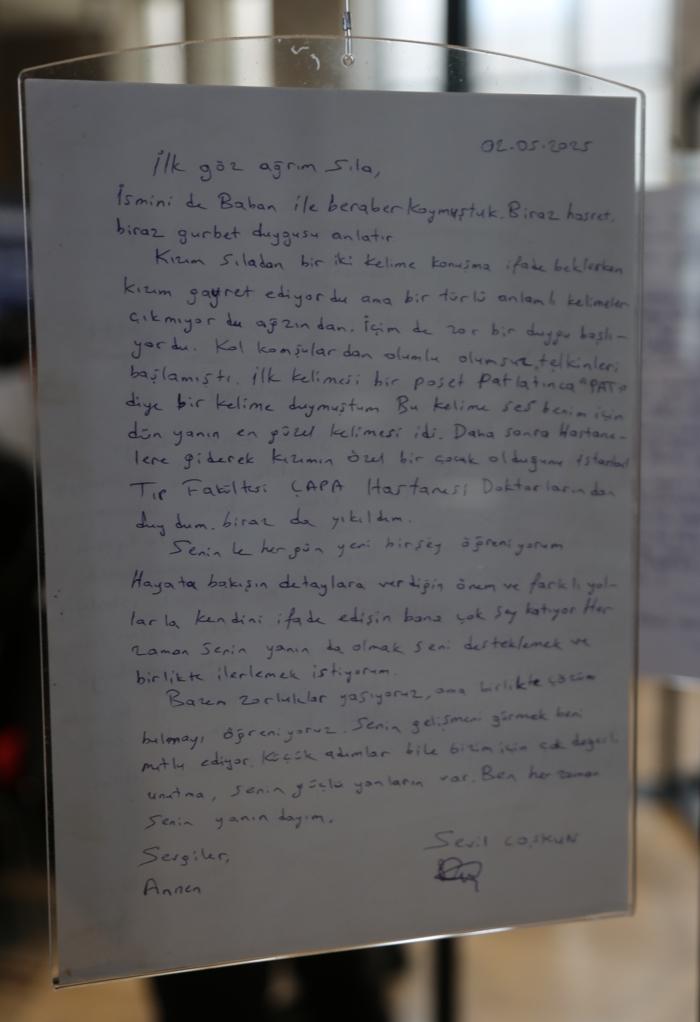 02.05.2025
İlk göz ağrım Sıla,
İsmini de Baban ile beraber koymuştuk. Biraz hasret,
biraz gurbet duygusu anlatır
Kızım Sıladan bir iki kelime konuşma ifade beklerken
kızım gayret ediyor du ama bir türlü anlamlı kelimeler
çıkmıyor du ağzından. İçim de zor bir duygu başlı-
yor du. Kol komşular dan olumlu olumsuz telkinleri
başlamıştı. İlk kelimesi bir poşet Patlatınca "PAT"
diye bir kelime duymuştum Bu kelime ses benim için
dün yanın en güzel kelimesi idi. Daha sonra Hastane-
lere giderek kızımın özel bir çocuk olduğunu İstanbul
Tıp Fakültesi ÇAPA Hastanesi Doktorlarından
duy dum. biraz da yıkıldım.
Senin le her gün yeni birşey öğreni yorum
Hayata bakışın detaylara ver diğin önem ve farklı yol-
lar la kendini ifade edişin bana çok şey katıyor Her
zaman senin yanın da olmak seni desteklemek ve
birlikte ilerlemek istiyorum.
Bazen zorluklar yaşıyoruz, ama birlikte çözüm
bulmayı öğreni yoruz. Senin gelişmeni görmek beni
mutlu ediyor. Küçük adımlar bile bizim için çok değerli
unutma, senin güçlü yanların var. Ben her zaman
senin yanın dayım.
Sevgiler,
Annen
Sevil COŞKUN